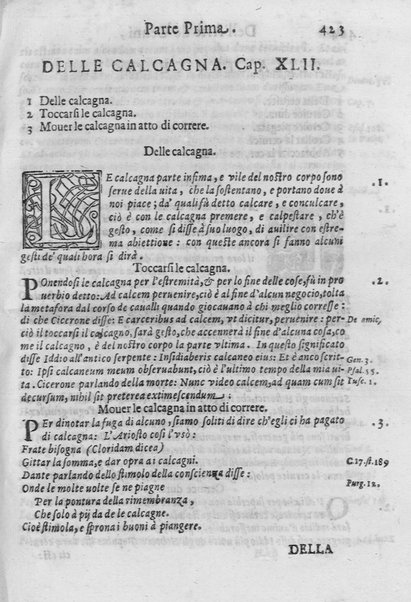 Parte Prima. 423
DELLE CALCAGNA. Cap. XLII.
1 Delle calcagna.
2 Toccarsi le calcagna.
3 Mouer le calcagna in atto di correre.
Delle calcagna.
LE calcagna parte infima, e vile del nostro corpo sono .1.
serue della uita, che la sostentano, e portano doue à
noi piace; da' quali fù detto calcare, e conculcare,
ciò è con le calcagna premere, e calpestare, ch'è
gesto, come si disse à suo luogo, di auilire con estre-
ma abiettione: con queste ancora si fanno alcuni
gesti de' quali hora si dirà.
Toccarsi le calcagna.
POnendosi le calcagna per l'estremità, & per lo fine delle cose, fù in pro .2.
uerbio detto: Ad calcem peruenire, ciò è al fine d'alcun negocio, tolta
la metafora dal corso de caualli quando giocauano à chi meglio corresse:
di che Cicerone disse: E carceribus ad calcem, vt dicitur, peruenire: per- De amic.
ciò il toccarsi il calcagno, sarà gesto, che accennerà il fine d'alcuna cosa, co
me il calcagno, è del nostro corpo la parte vltima. In questo significato
disse Iddio all'antico serpente: Insidiaberis calcaneo eius: Et è anco scrit- Gen. 3.
to: Ipsi calcaneum meum obseruabunt, ciò è l'ultimo tempo della mia ui- Psal. 55.
ta. Cicerone parlando della morte: Nunc video calcem, ad quam cum sit Tusc. 1.
decursum, nihil sit preterea extimescendum:
Mouer le calcagna in atto di correre.
PEr dinotar la fuga di alcuno, stamo soliti di dire ch'egli ci ha pagato .3.
di calcagna: L'Ariosto così l'vsò:
Frate bisogna (Cloridam dicea)
Gittar la somma, e dar opra ai calcagni. C 17. st. 189
Dante parlando dello stimolo della conscienza disse:
Onde le molte uolte se ne piagne Purg. 12.
Per la pontura della rimembranza,
Che solo à pij da de le calcagne.
Cioè stimola, e sprona i buoni à piangere.
DELLA